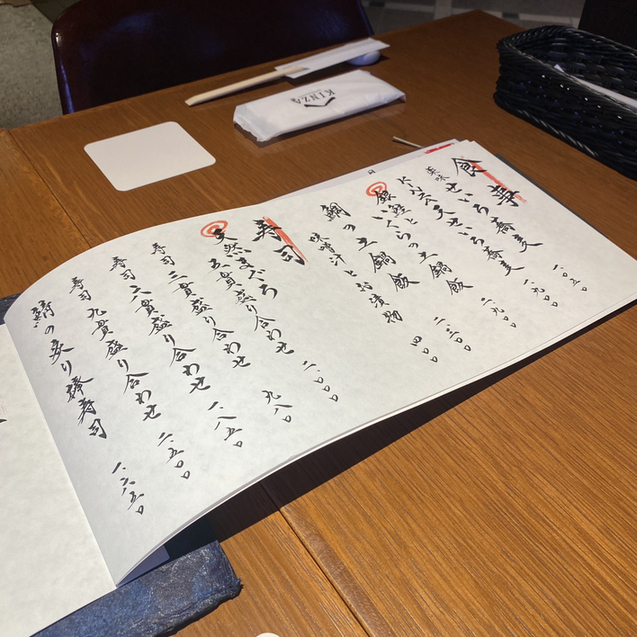 KINZA
食事
せいろ蕎麦 一、〇五〇
天せいろ蕎麦 一、九〇〇
銀鮭と
いくらの土鍋飯 二、九〇〇
鯛の土鍋飯 二、三〇〇
味噌汁とお漬物 四〇〇
寿司
天然まぐろ
五貫盛り合わせ 二、〇〇〇
寿司 三貫盛り合わせ 九八〇
寿司 六貫盛り合わせ 一、八五〇
寿司 九貫盛り合わせ 二、五〇〇
鯖の炙り棒寿司